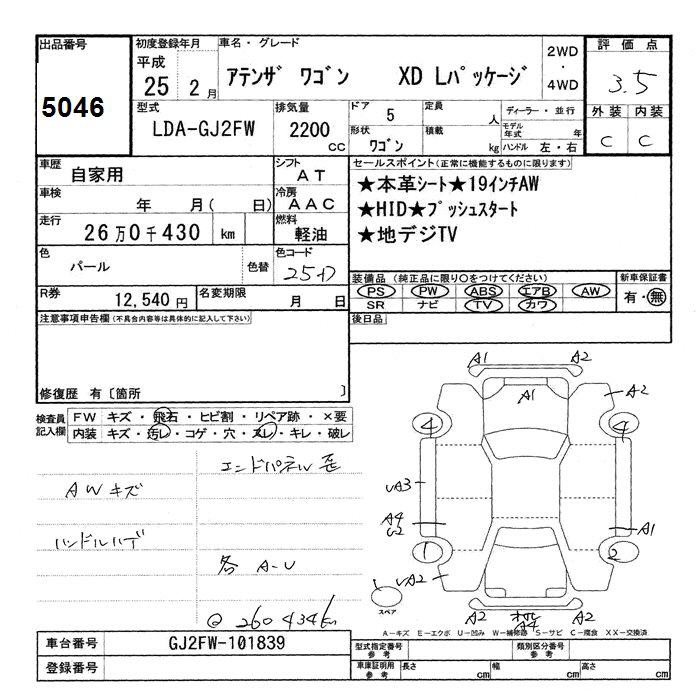 出品番号
5046
初度登録年月
平成
25 2月
車名・グレード
アテンザ ワゴン XD Lパッケージ
2WD
・
4WD
評価点
3.5
外装 内装
C C
型式
LDA-GJ2FW
排気量
2200 cc
ドア 5
定員 人
形状 ワゴン
積載 kg
ディーラー・並行
モデル年式 年
ハンドル 左・右
車歴 自家用
シフト AT
車検 年 月( 日)
冷房 AAC
走行 26万0千430 km
燃料 軽油
色 パール 色替
色コード 25D
R券 12,540円
名変期限 月 日
セールスポイント(正常に機能するものに限ります)
★本革シート★19インチAW
★HID★プッシュスタート
★地デジTV
装備品 (純正品に限り〇をつけてください)
PS PW ABS エアB AW
SR ナビ TV カワ
新車保証書
有・無
後日品
注意事項申告欄(不具合内容等は具体的に記入して下さい)
修復歴 有〔箇所 〕
検査員記入欄
FW キズ・飛石・ヒビ割・リペア跡・×要
内装 キズ・汚レ・コゲ・穴・スレ・キレ・破レ
エンドパネル歪
AWキズ
ハンドルハゲ
各 A-U
@ 260434km
A1 A2
A1
A2
4 4
UA3
A4
U2
A1
1 2
UA2
スペア
A2 A4 A2
A-キズ E-エクボ U-凹み W-補修跡 S-サビ C-腐食 XX-交換済
車台番号 GJ2FW-101839
登録番号
型式指定番号 参考
類別区分番号 参考
車庫証明用 参考
長さ cm 幅 cm 高さ cm